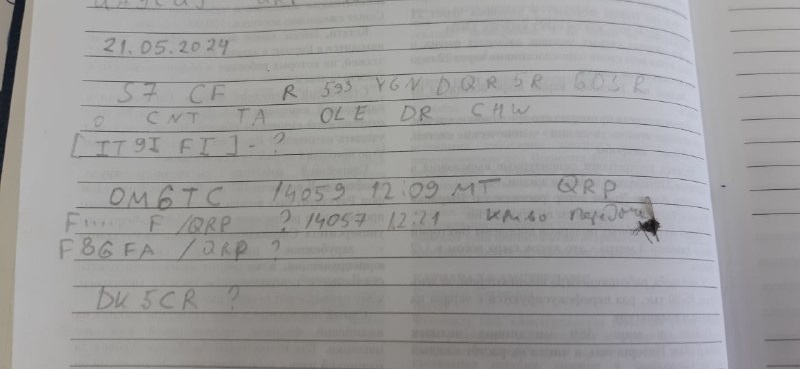 21.05.2024
S7 CF R 599 YGN DQR 5R GDSR
O CNT TA OLE DR CHW
[IT9I FI] - ?
OM6TC 14059 12:09 MT QRP
F.... F /QRP ? 14057 12:21 криво передач
F8GFA /QRP ?
DK5CR ?